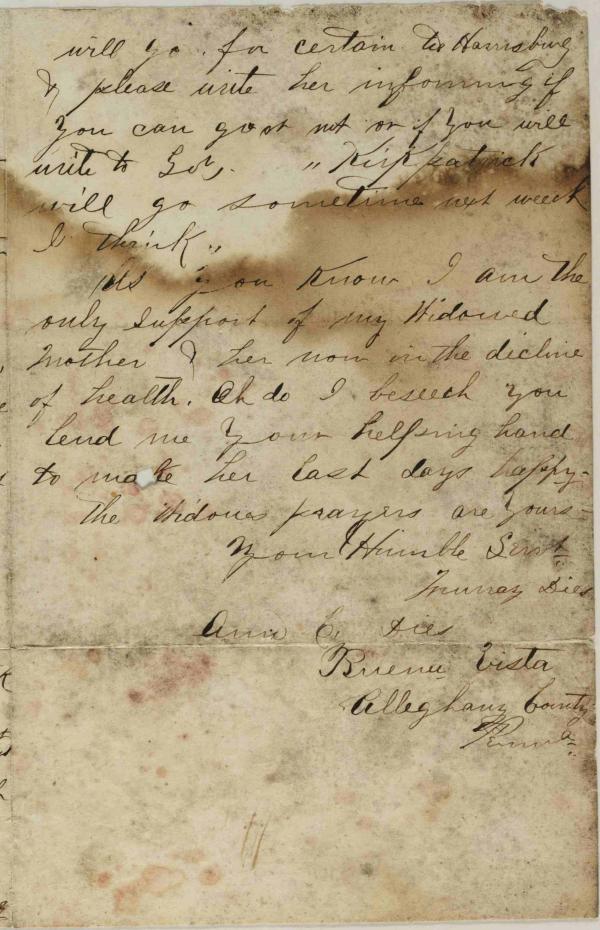 will go for certain to Harrisburg
& please write her informing if
you can go or not or if you will
write to Gov. " Kirkpatrick
will go sometime next week
I think "
As you know I am the
only support of my Widowed
Mother & her now in the decline
of health. Oh do I beseech you
lend me your helping hand
to make her last days happy-
the Widows prayers are yours-
Your Humble Servt
Murray Dies
Ann E. Dies
Buena Vista
Alleghany County
Penna